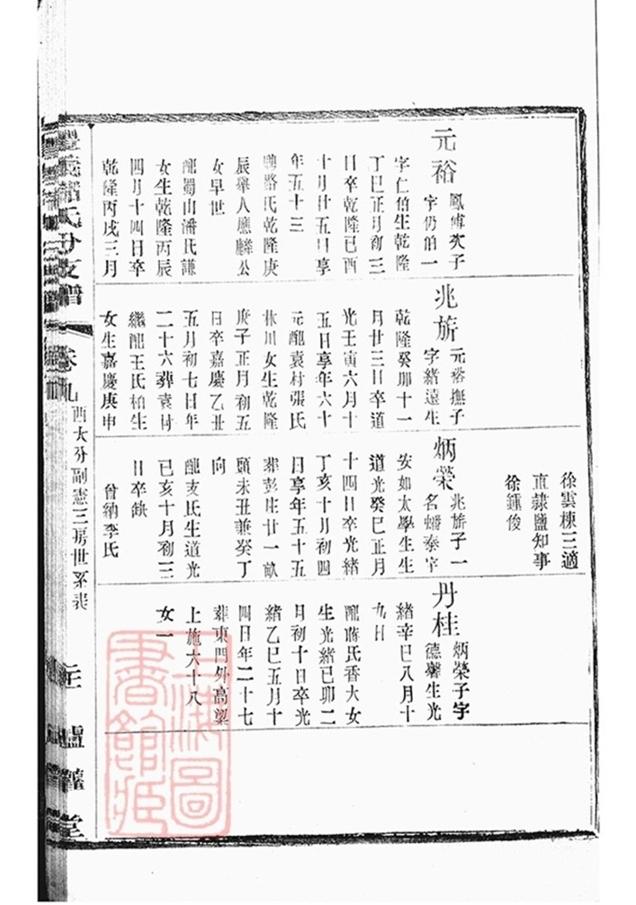 元裕
鳳博次子
字仍伯一
字仁伯生乾隆
丁巳正月初三
日卒乾隆己酉
十月廿五日享
年五十三
路氏乾隆庚
辰舉人應麟公
女早世
配蜀山潘氏謙
女生乾隆丙辰
四月十四日卒
乾隆丙戌三月
兆旂
元裕撫子
字緒遠生
乾隆癸卯十一
月廿三日卒道
光壬寅六月十
五日享年六十
元配袁村張氏
休川女生乾隆
庚子正月初五
日卒嘉慶乙丑
五月初七日年
二十六葬袁村
繼配王氏柏生
女生嘉慶庚申
徐雲棟三適
直隸鹽知事
徐鍾俊
炳榮
兆旂子一
名蟠泰字
安如太學生生
道光癸巳正月
十四日卒光緒
丁亥十月初四
日享年五十五
葬彭庄廿一畝
頭未丑兼癸丁
向
配支氏生道光
己亥十月初三
日卒缺
曾納李氏
丹桂
炳榮子字
德馨生光
緒辛巳八月十
九日
配蔣氏香大女
生光緒己卯二
月初十日卒光
緒乙巳五月十
四日年二十七
葬東門外高望
上施六十八
女一
氏分支譜
卷九
酉大分副憲三房世系表
堂